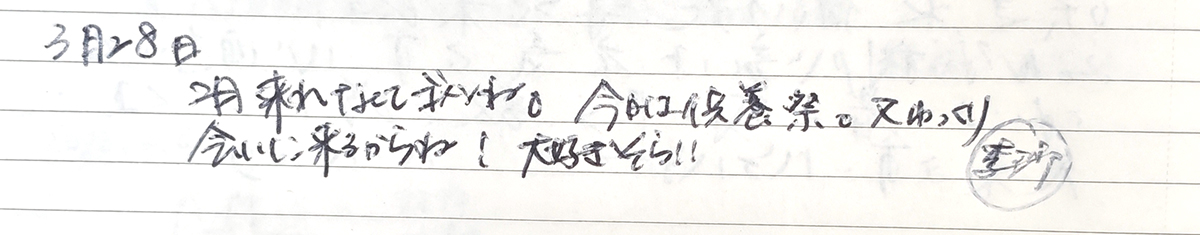 3月28日
2月来れなくてごめんね。今日は供養祭。又ゆっくり
会いに来るからね！大好きそら!!